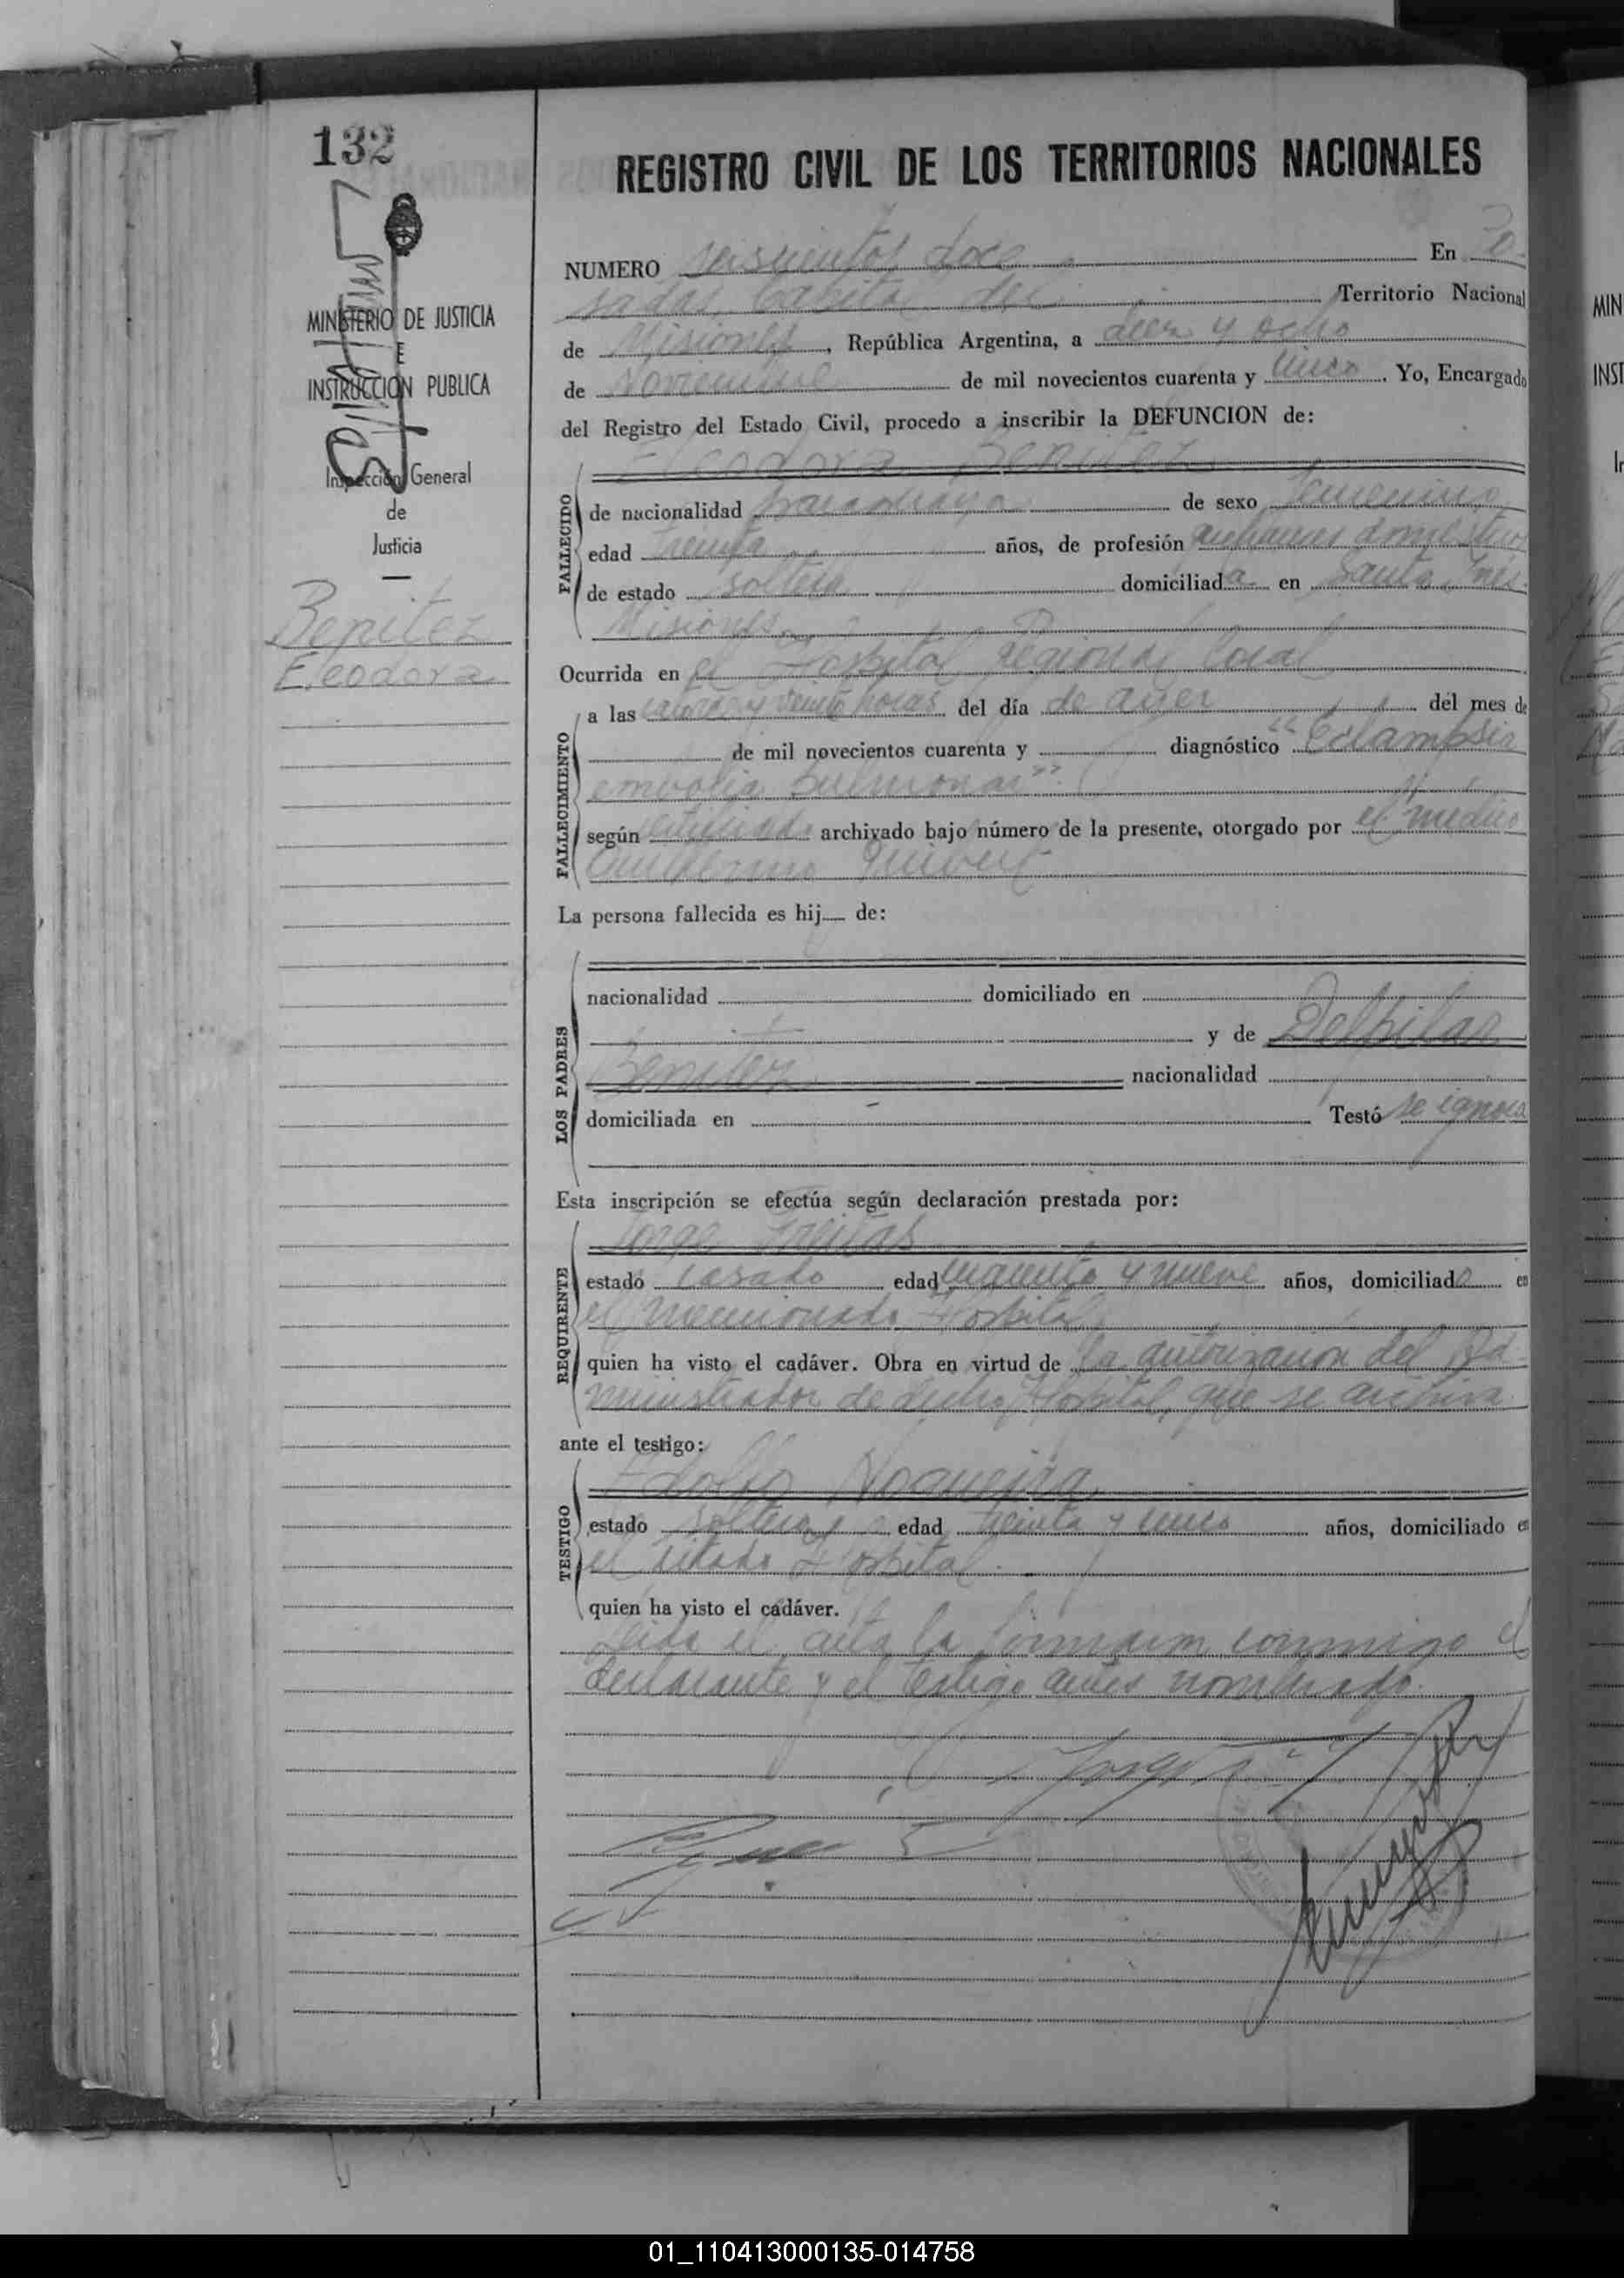 132
REGISTRO CIVIL DE LOS TERRITORIOS NACIONALES
MINISTERIO DE JUSTICIA
E
INSTRUCCION PUBLICA
Inspección General
de
Justicia
Benitez
Eleodora
NUMERO seiscientos doce En Po
sadas, Capital del Territorio Nacional
de Misiones, República Argentina, a diez y ocho
de Noviembre de mil novecientos cuarenta y cinco. Yo, Encargado
del Registro del Estado Civil, procedo a inscribir la DEFUNCION de:
Eleodora Benitez
FALLECIDO
de nacionalidad paraguaya de sexo femenino
edad treinta años, de profesión quehaceres domésticos
de estado soltera domiciliada en Santa Ines
Misiones
Ocurrida en el Hospital Regional local
FALLECIMIENTO
a las catorce y veinte horas del día de ayer del mes de
de mil novecientos cuarenta y diagnóstico "Eclampsia
embolia pulmonar".
según certificado archivado bajo número de la presente, otorgado por el médico
Guillermo
La persona fallecida es hij de:
LOS PADRES
nacionalidad domiciliado en
y de Delpilar
Benitez nacionalidad
domiciliada en Testó se ignora
Esta inscripción se efectúa según declaración prestada por:
REQUIRENTE
Jorge Freitas
estado casado edad cincuenta y nueve años, domiciliado en
el mencionado Hospital
quien ha visto el cadáver. Obra en virtud de la autorización del Ad
ministrador de dicho Hospital, que se archiva
ante el testigo:
TESTIGO
Adolfo Nogueira
estado soltero edad treinta y cinco años, domiciliado en
el citado Hospital.
quien ha visto el cadáver.
Leida el acta la firmaron conmigo el
declarante y el testigo antes nombrado.
01_110413000135-014758